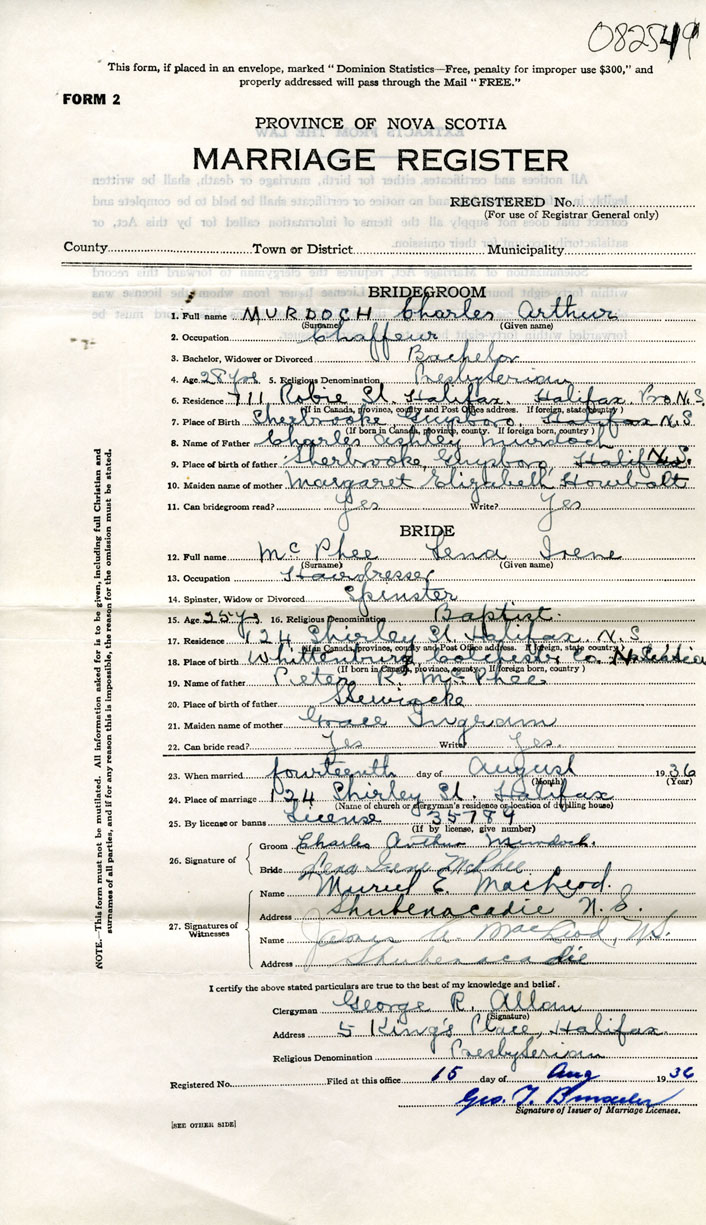 This form, if placed in an envelope, marked "Dominion Statistics—Free, penalty for improper use $300," and
properly addressed will pass through the Mail "FREE."
FORM 2
PROVINCE OF NOVA SCOTIA
MARRIAGE REGISTER
REGISTERED No.
(For use of Registrar General only)
County Town or District Municipality
BRIDEGROOM
1. Full name MURDOCH Charles Arthur
(Surname) (Given name)
2. Occupation Chaffeur
3. Bachelor, Widower or Divorced Bachelor
4. Age 28 yrs 5. Religious Denomination Presbyterian
6. Residence 711 Robie St. Halifax. Halifax. N.S.
(If in Canada, province, county and Post Office address. If foreign, state country)
7. Place of Birth Sherbrooke Guysboro N.S
(If born in Canada, province, county. If foreign born, country)
8. Name of Father Charles Ashley Murdoch
9. Place of birth of father Sherbrooke, Guysboro, N.S.
10. Maiden name of mother Margaret Elizabeth
11. Can bridegroom read? Yes Write? Yes
BRIDE
12. Full name McPhee Lena Irene
(Surname) (Given name)
13. Occupation Hairdresser
14. Spinster, Widow or Divorced Spinster
15. Age 25 yrs 16. Religious Denomination Baptist.
17. Residence 124 Shirley St Halifax. N.S
(If in Canada, province, county and Post Office address. If foreign, state country)
18. Place of birth Colchester Co.
(If born in Canada, province, county. If foreign born, country)
19. Name of father Peter R. McPhee
20. Place of birth of father Stewiacke
21. Maiden name of mother Grace Ingram
22. Can bride read? Yes Write Yes.
23. When married fourteenth day of August 1936
(Month) (Year)
24. Place of marriage 124 Shirley St. Halifax
(Name of church or clergyman's residence or location of dwelling house)
25. By license or banns License 35784
(If by license, give number)
26. Signature of
Groom Charles Arthur Murdoch.
Bride Lena Irene McPhee
27. Signatures of Witnesses
Name Muriel E. MacLeod.
Address Shubenacadie N.S.
Name A. MacLeod,
Address Shubenacadie
I certify the above stated particulars are true to the best of my knowledge and belief.
Clergyman George R. Allan
(Signature)
Address 5 King's Place, Halifax
Religious Denomination Presbyterian
Registered No. Filed at this office 15 day of Aug 1936
Signature of Issuer of Marriage Licenses.
[SEE OTHER SIDE]
NOTE.—This form must not be mutilated. All information asked for is to be given, including full Christian and
surnames of all parties, and if for any reason this is impossible, the reason for the omission must be stated.